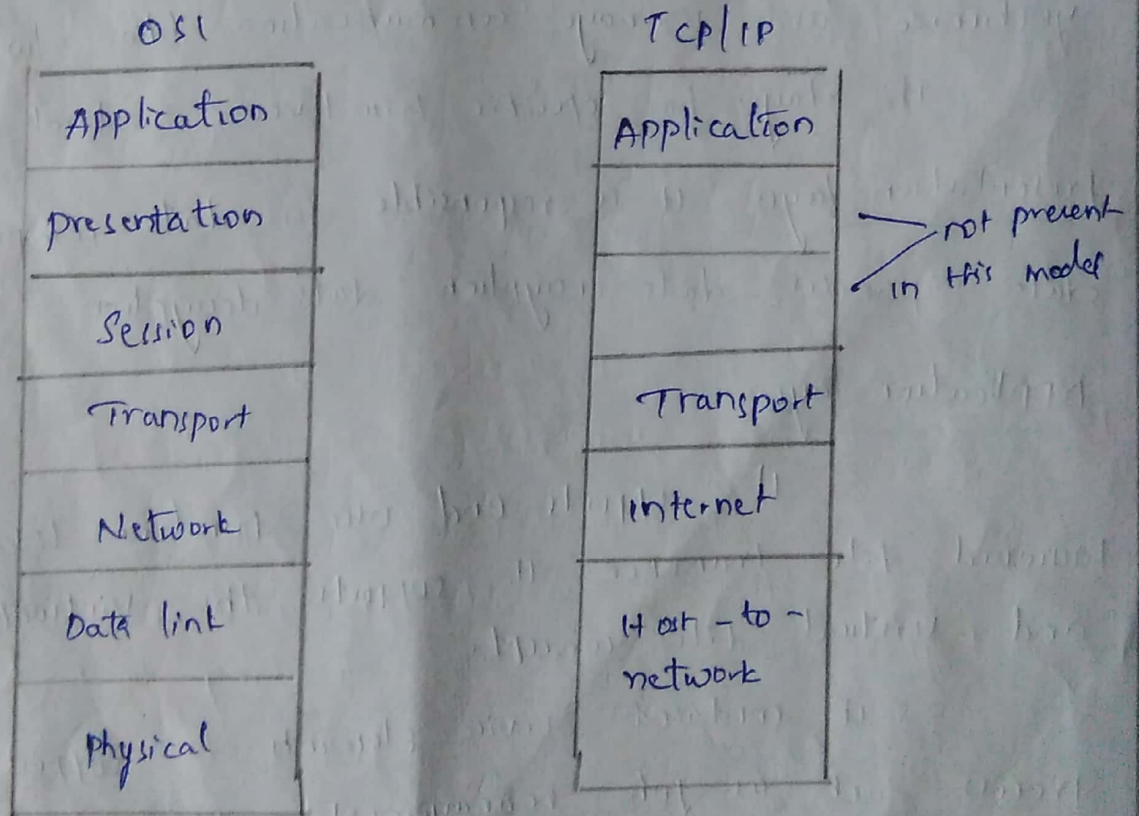 OSI
TCP/IP
Application
Presentation
Session
Transport
Network
Data link
Physical
Application
not present
in this model
Transport
Internet
Host-to-
network